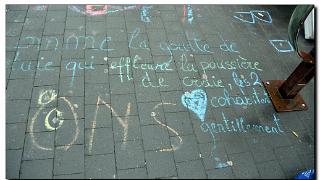 comme la goutte de
pluie qui effleure la poussière
de craie, les 2
cohabitent
gentillement
ONS